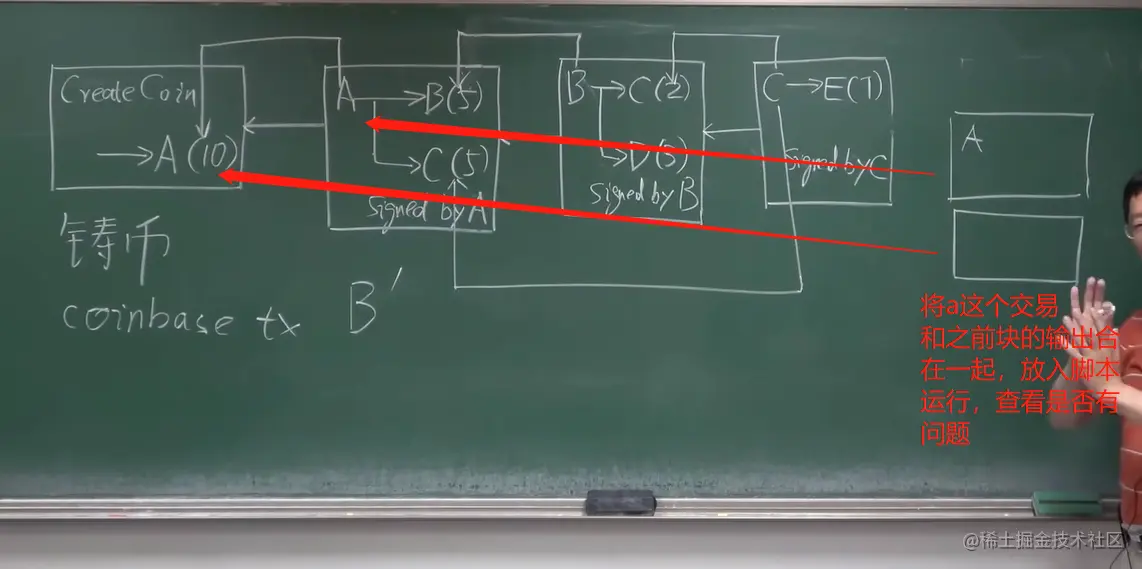 CreateCoin
→A(10)
A→B(5)
→C(5)
Signed by A
B→C(2)
→D(3)
Signed by B
C→E(7)
Signed by C
A
铸币
coinbase tx
B'
将a这个交易
和之前块的输出合
在一起，放入脚本
运行，查看是否有
问题
@稀土掘金技术社区